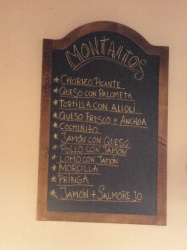 MONTAITOS
CHORIZO PICANTE
QUESO CON PALOMETA
TORTILLA CON ALIOLI
QUESO FRESCO + ANCHOA
COCHINITO
JAMÓN CON QUESO
POLLO CON JAMÓN
LOMO CON JAMÓN
MORCILLA
PRINGÁ
JAMÓN + SALMOREJO